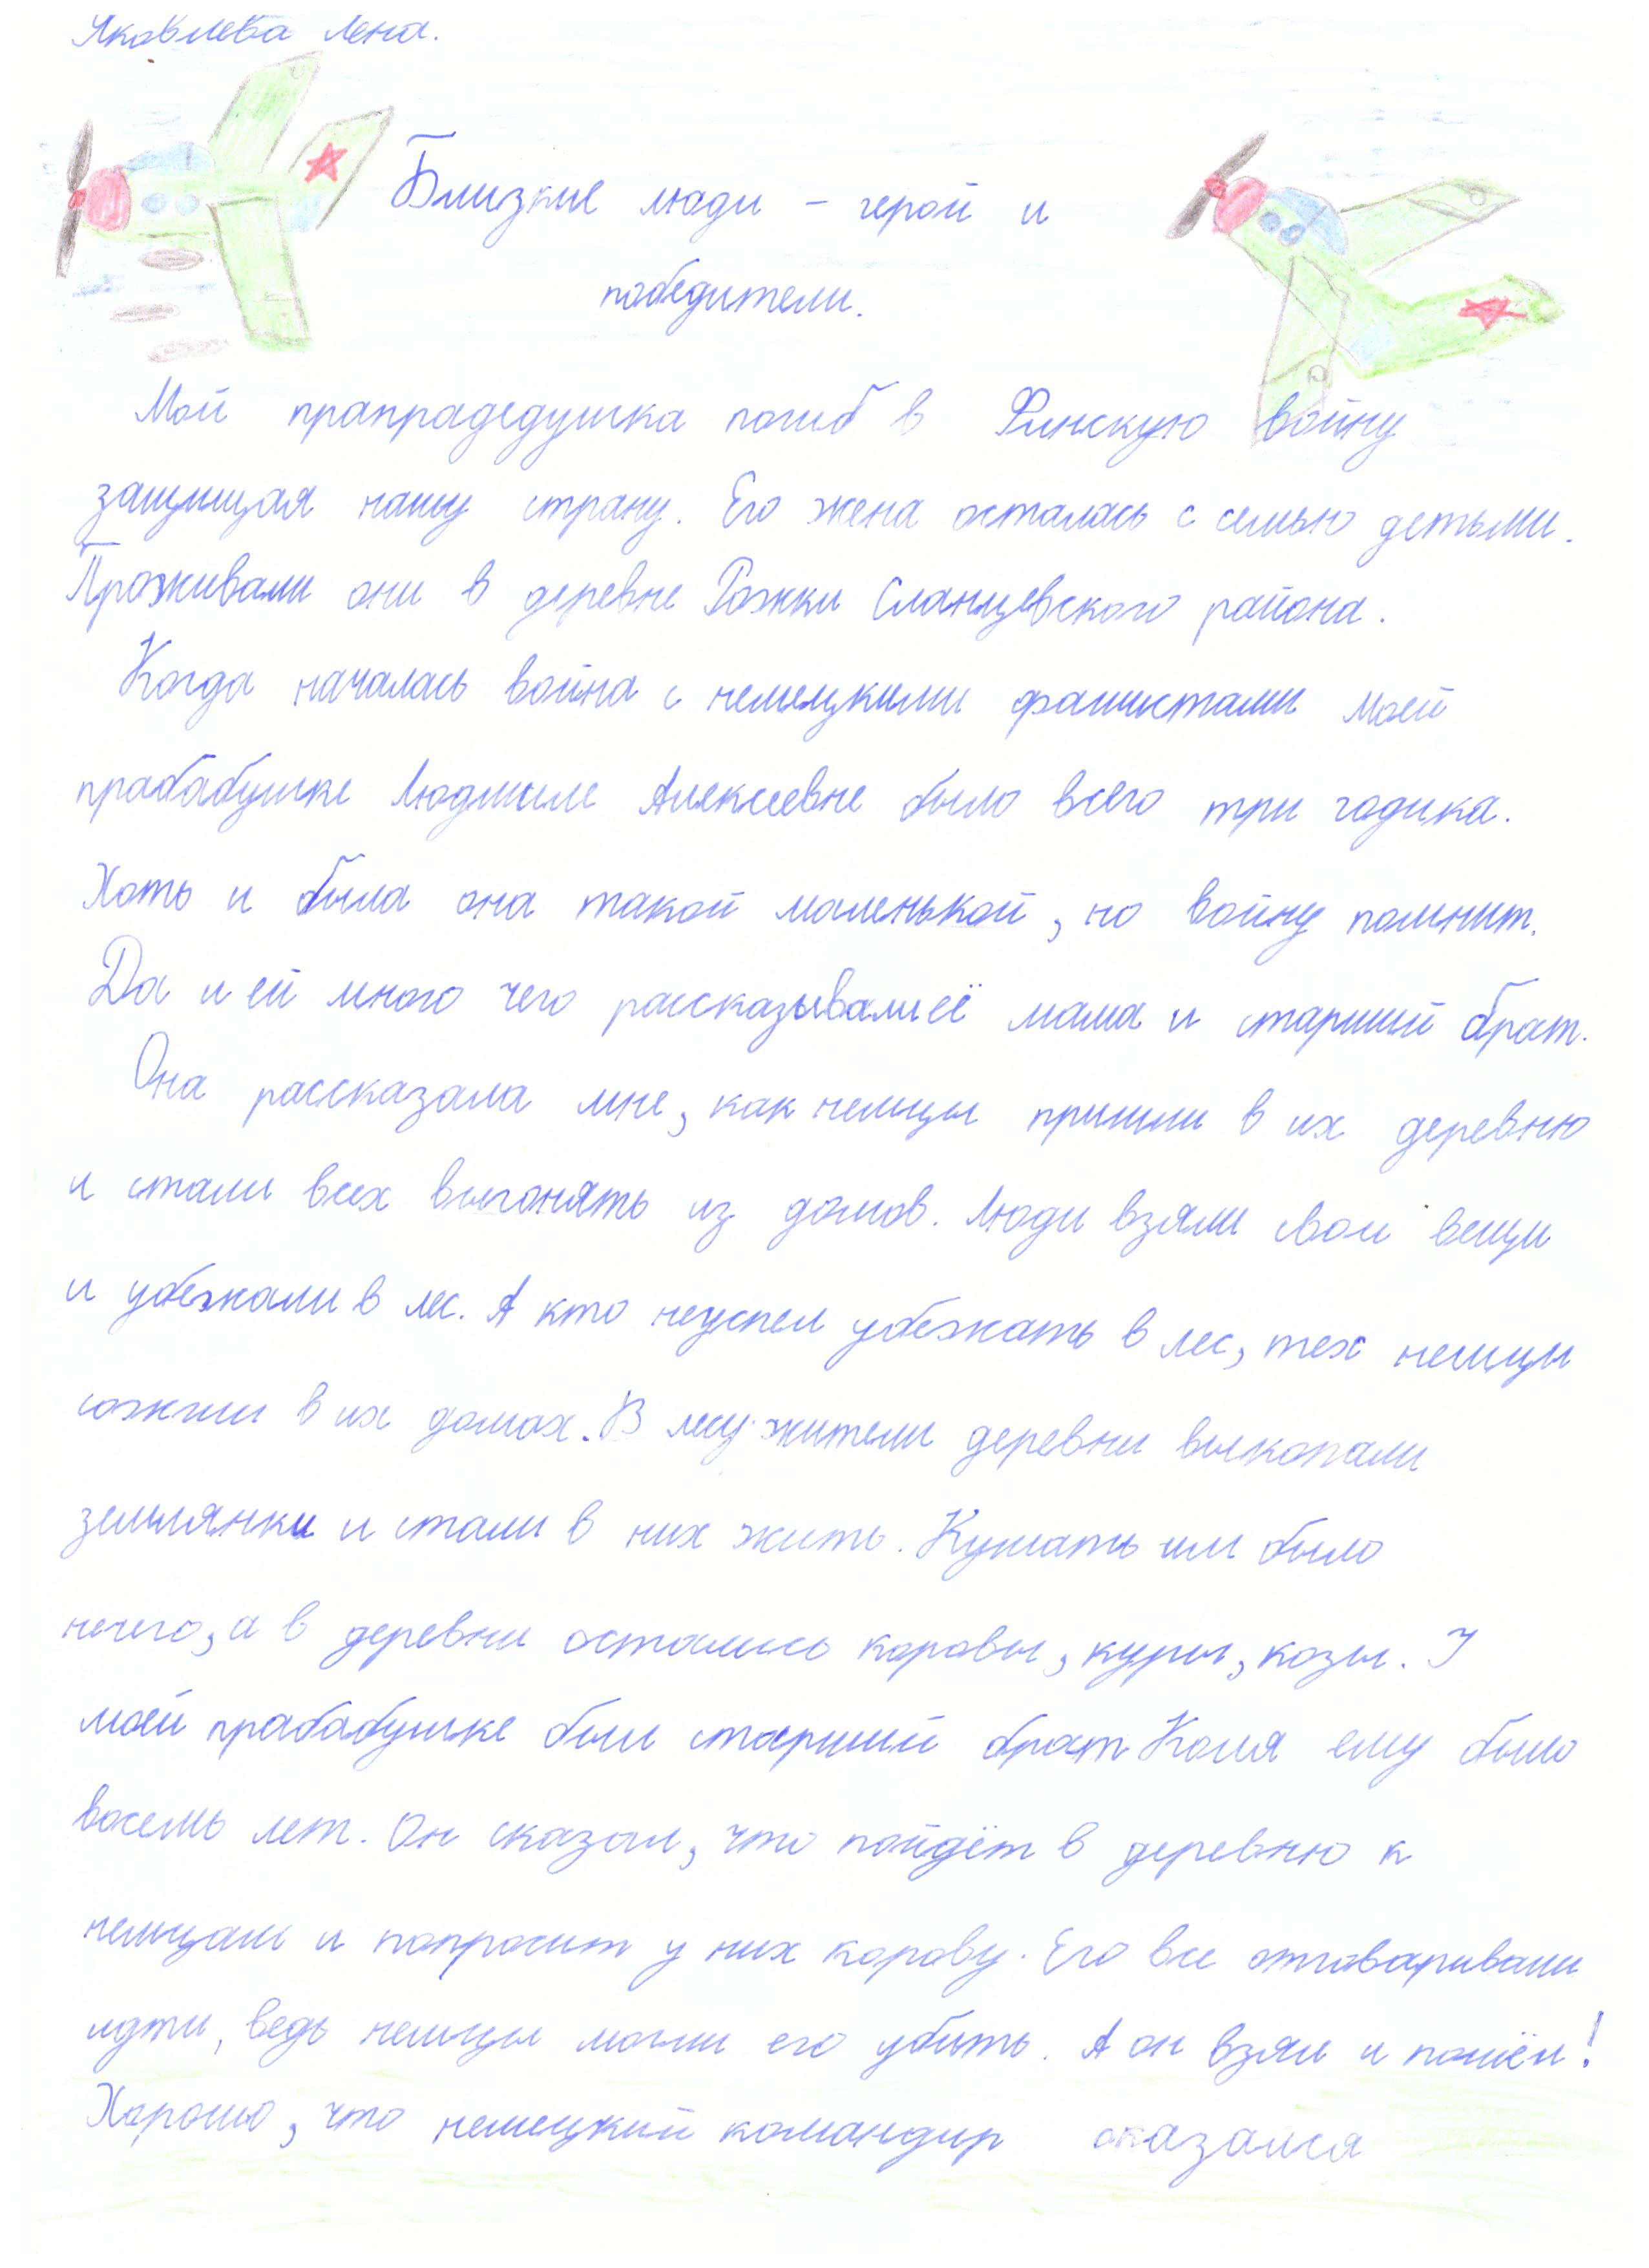 Яковлева Лена.
Близкие люди - герой и
победители.
Мой прапрадедушка погиб в Финскую войну
защищая нашу страну. Его жена осталась с семью детьми.
Проживали они в деревне Рожки Сланцевского района.
Когда началась война с немецкими фашистами моей
прабабушке Людмиле Алексеевне было всего три годика.
Хоть и была она такой маленькой, но войну помнит.
Да и ей много чего рассказывали её мама и старший брат.
Она рассказала мне, как немцы пришли в их деревню
и стали всех выгонять из домов. Люди взяли свои вещи
и убежали в лес. А кто неуспел убежать в лес, тех немцы
сожгли в их домах. В лесу жители деревни выкопали
землянки и стали в них жить. Кушать им было
нечего, а в деревни остались коровы, куры, козы. У
моей прабабушке был старший брат Коля ему было
восемь лет. Он сказал, что пойдёт в деревню к
немцам и попросит у них корову. Его все отговаривали
идти, ведь немцы могли его убить. А он взял и пошёл!
Хорошо, что немецкий командир оказался